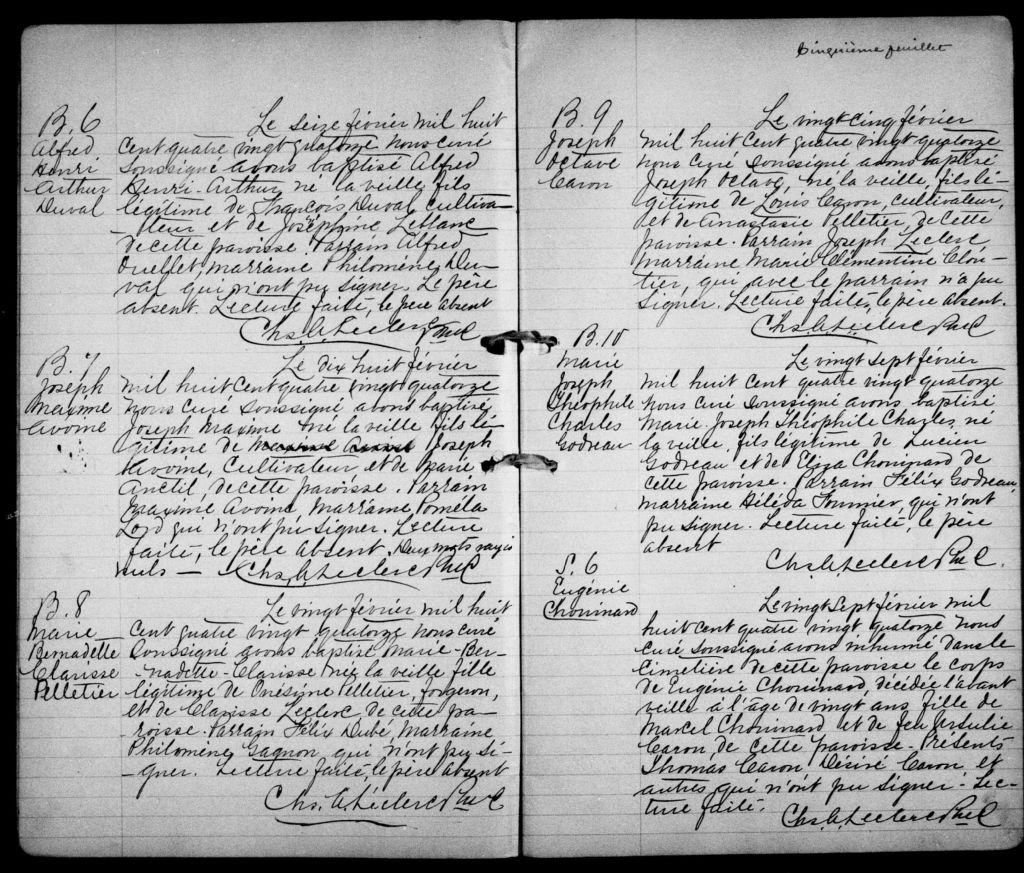 B. 6
Alfred
Henri
Arthur
Duval
Le seize février mil huit
Cent quatre vingt quatorze Nous curé
Soussigné avons baptisé Alfred
Henri-Arthur né la veille, fils
légitime de François Duval cultiva-
-teur et de Joséphine Leblanc
de cette paroisse. Parrain Alfred
Ouellet, marraine Philomène Du-
val qui n'ont pu signer. Le père
absent. Lecture faite, le père absent
Chs. A. Leclerc Ptre C
B. 7
Joseph
Maxime
Avoine
Le Dix huit février
mil huit Cent quatre vingt quatorze
Nous curé Soussigné avons baptisé
Joseph Maxime né la veille fils lé-
gitime de Joseph
Avoine, Cultivateur, et de Marie
Anctil, de cette paroisse. Parrain
Maxime Avoine, Marraine Poméla
Lord qui n'ont pu signer. Lecture
faite, le père absent. Deux mots rayés
nuls — Chs. A. Leclerc Ptre C
B. 8
Marie
Bernadette
Clarisse
Pelletier
Le vingt février mil huit
Cent quatre vingt quatorze Nous curé
Soussigné avons baptisé Marie-Ber-
-nadette-Clarisse née la veille fille
légitime de Onésime Pelletier, forgeron,
et de Clarisse Leclerc de cette pa-
roisse. Parrain Félix Dubé, Marraine
Philomène Gagnon qui n'ont pu si-
-gner. Lecture faite, le père absent
Chs. A. Leclerc Ptre C
Cinquième feuillet
B. 9
Joseph
Octave
Caron
Le vingt cinq février
mil huit Cent quatre vingt quatorze
Nous curé Soussigné avons baptisé
Joseph Octave, né la veille, fils lé-
gitime de Louis Caron, cultivateur,
et de Anastasie Pelletier, de cette
paroisse. Parrain Joseph Leclerc,
Marraine Marie Clémentine Clou-
tier, qui avec le parrain n'a pu
signer. Lecture faite, le père absent.
Chs. A. Leclerc Ptre C
B. 10
Marie
Joseph
Théophile
Charles
Godreau
Le vingt sept février
mil huit Cent quatre vingt quatorze
Nous curé Soussigné avons baptisé
Marie. Joseph Théophile Charles, né
la veille, fils légitime de Lucien
Godreau et de Eliza Chouinard de
cette paroisse. Parrain Félix Godreau,
Marraine Hiléda Fournier, qui n'ont
pu signer. Lecture faite, le père
absent
Chs. A. Leclerc Ptre C.
S. 6
Eugénie
Chouinard
Le vingt sept février mil
huit cent quatre vingt quatorze Nous
Curé Soussigné avons inhumé dans le
Cimetière de cette paroisse le corps
de Eugénie Chouinard, décédée l'avant
veille à l'âge de vingt ans, fille de
Marcel Chouinard et de feu Ursulie
Caron de cette paroisse. Présents
Thomas Caron, Désiré Caron et
autres qui n'ont pu signer - Lec-
ture faite.
Chs. A. Leclerc Ptre C